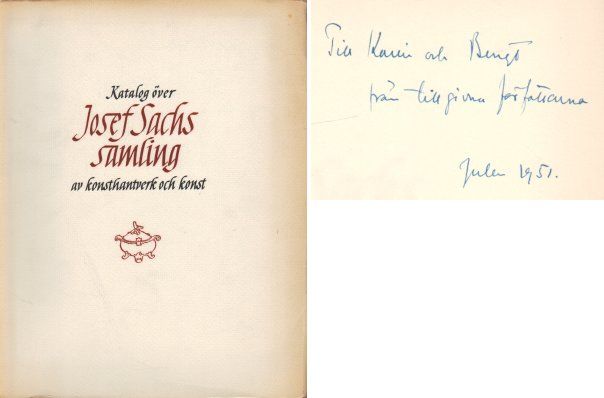 Katalog över
Josef Sachs
samling
av konsthantverk och konst
Till Karin och Bengt
från tillgivna författarna
Julen 1951.